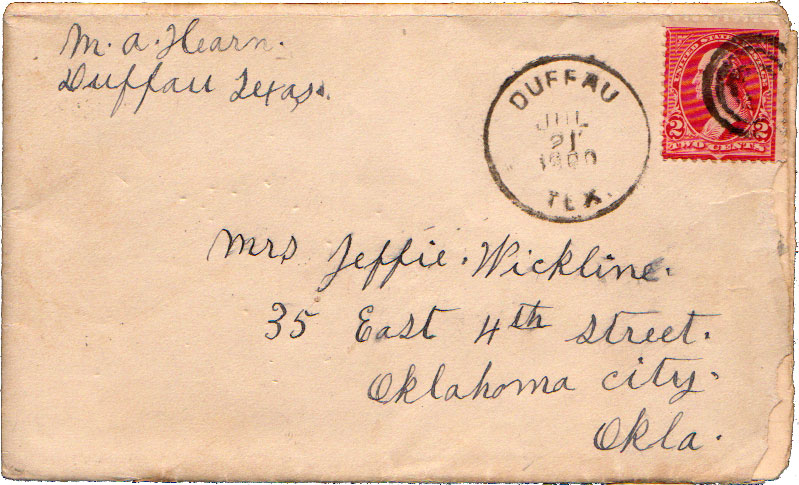 M. A. Hearn.
Duffau Texas.
DUFFAU
JUL
21
1900
TEX.
UNITED STATES POSTAGE
2 2
TWO CENTS
Mrs Jeffie. Wickline.
35 East 4th street.
Oklahoma city.
Okla.